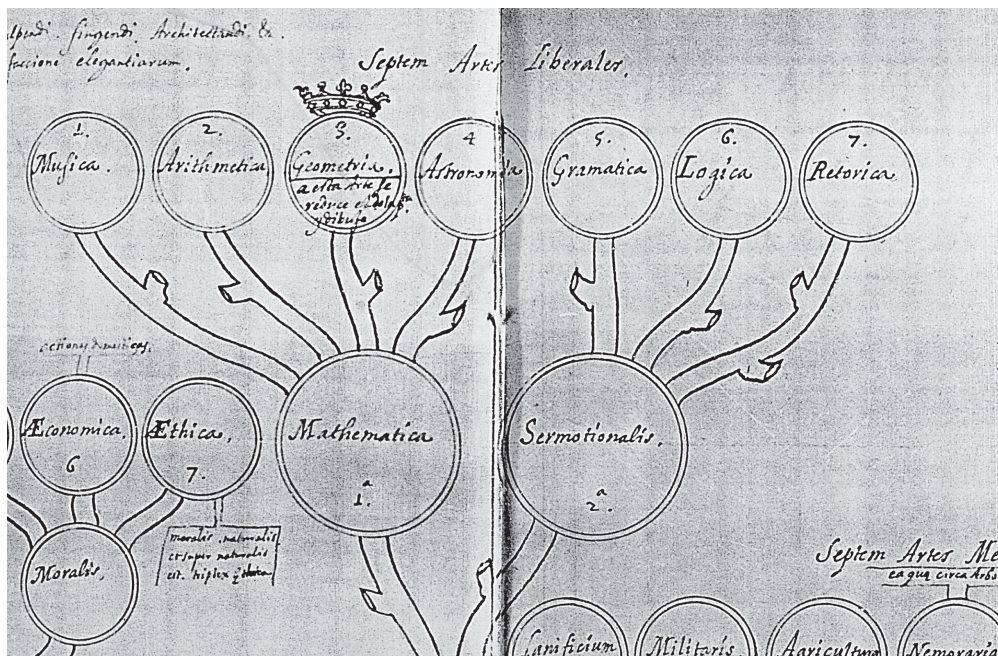 Sculpendi. fingendi. Architectandi. &c.
elegantiarum.
Septem Artes Liberales.
1.
Musica.
2.
Arithmetica
3.
Geometria.
a esta Arte se
reduce
4
Astronomia
5.
Gramatica
6.
Logica
7.
Retorica
Æconomica.
6
Æthica.
7.
Mathematica
1.ª
Sermotionalis.
2.ª
moralis, naturalis
et super naturalis
est. triplex
Moralis.
Septem Artes Me
ea quæ circa Arbo
Lanificium
Militaris.
Agricultura
Nemoraria